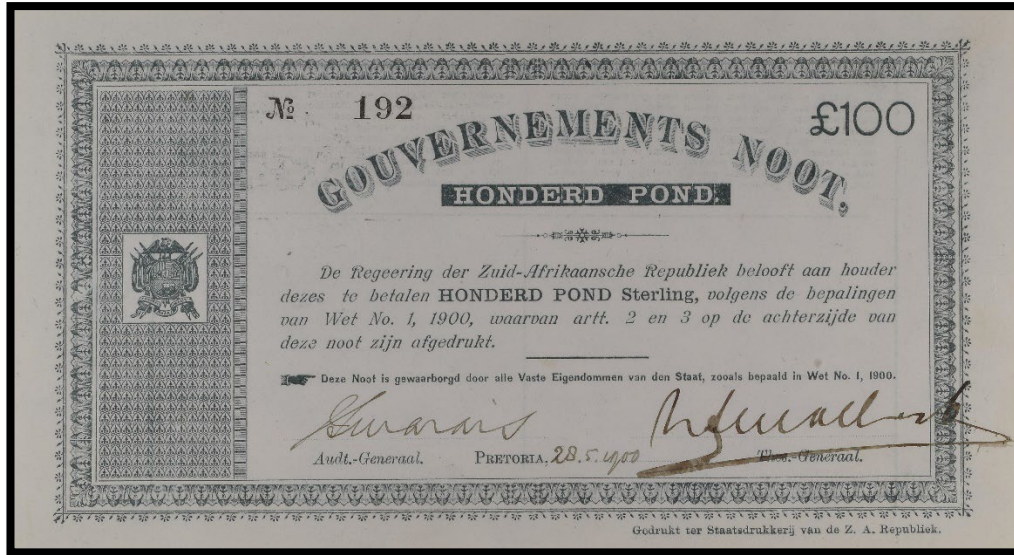 № 192 £100
GOUVERNEMENTS NOOT,
HONDERD POND.
De Regeering der Zuid-Afrikaansche Republiek belooft aan houder
dezes te betalen HONDERD POND Sterling, volgens de bepalingen
van Wet No. 1, 1900, waarvan artt. 2 en 3 op de achterzijde van
deze noot zijn afgedrukt.
Deze Noot is gewaarborgd door alle Vaste Eigendommen van den Staat, zooals bepaald in Wet No. 1, 1900.
Audt.-Generaal. PRETORIA, 28.5.1900 Thes.-Generaal.
Gedrukt ter Staatsdrukkerij van de Z. A. Republiek.